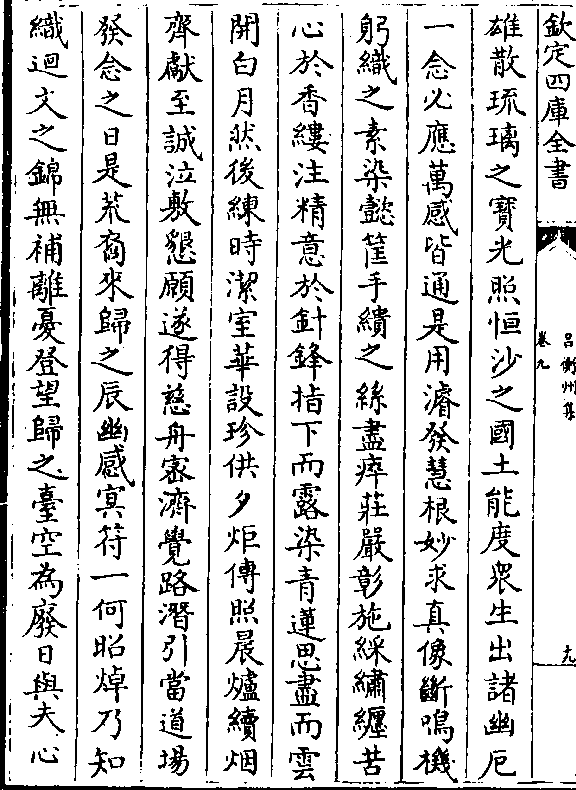 欽定四庫全書
呂衡州集
卷九
十九
雄散琉璃之寶光照恒沙之國土能度衆生出諸幽厄
一念必應萬感皆通是用濬發慧根妙求真像斷鳴機
躬織之素染懿筐手繢之絲盡瘁莊嚴彰施綵繡纒苦
心於香縷注精意於針鋒指下而露染青蓮思盡而雲
開白月然後練時潔室華設珍供夕炬傳照晨爐續烟
齊獻至誠泣敷懇願遂得慈舟宻濟覺路潛引當道場
發念之日是荒裔來歸之辰幽感冥符一何昭焯乃知
織迴文之錦無補離憂登望歸之臺空為廢日與夫心